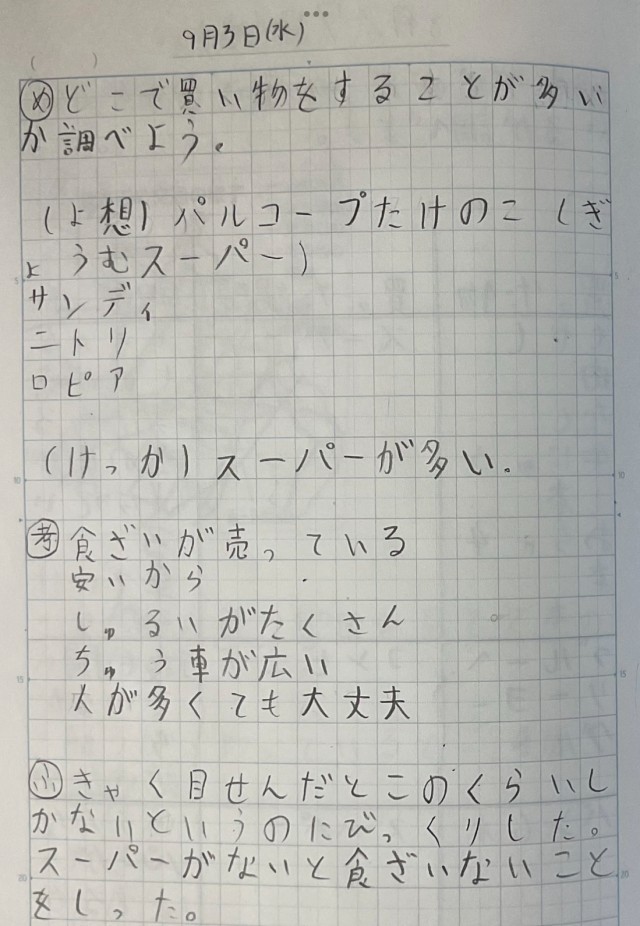 9月3日(水)
( )
め どこで買い物をすることが多い
か調べよう。
(よ想)パルコープたけのこ(ぎ
ょうむスーパー)
サンディ
ニトリ
ロピア
(けっか)スーパーが多い.
考 食ざいが売っている
安いから
しゅるいがたくさん
ちゅう車が広い
人が多くても大丈夫
ふ きゃく目せんだとこのくらいし
かないというのにびっくりした。
スーパーがないと食ざいないこと
をしった。